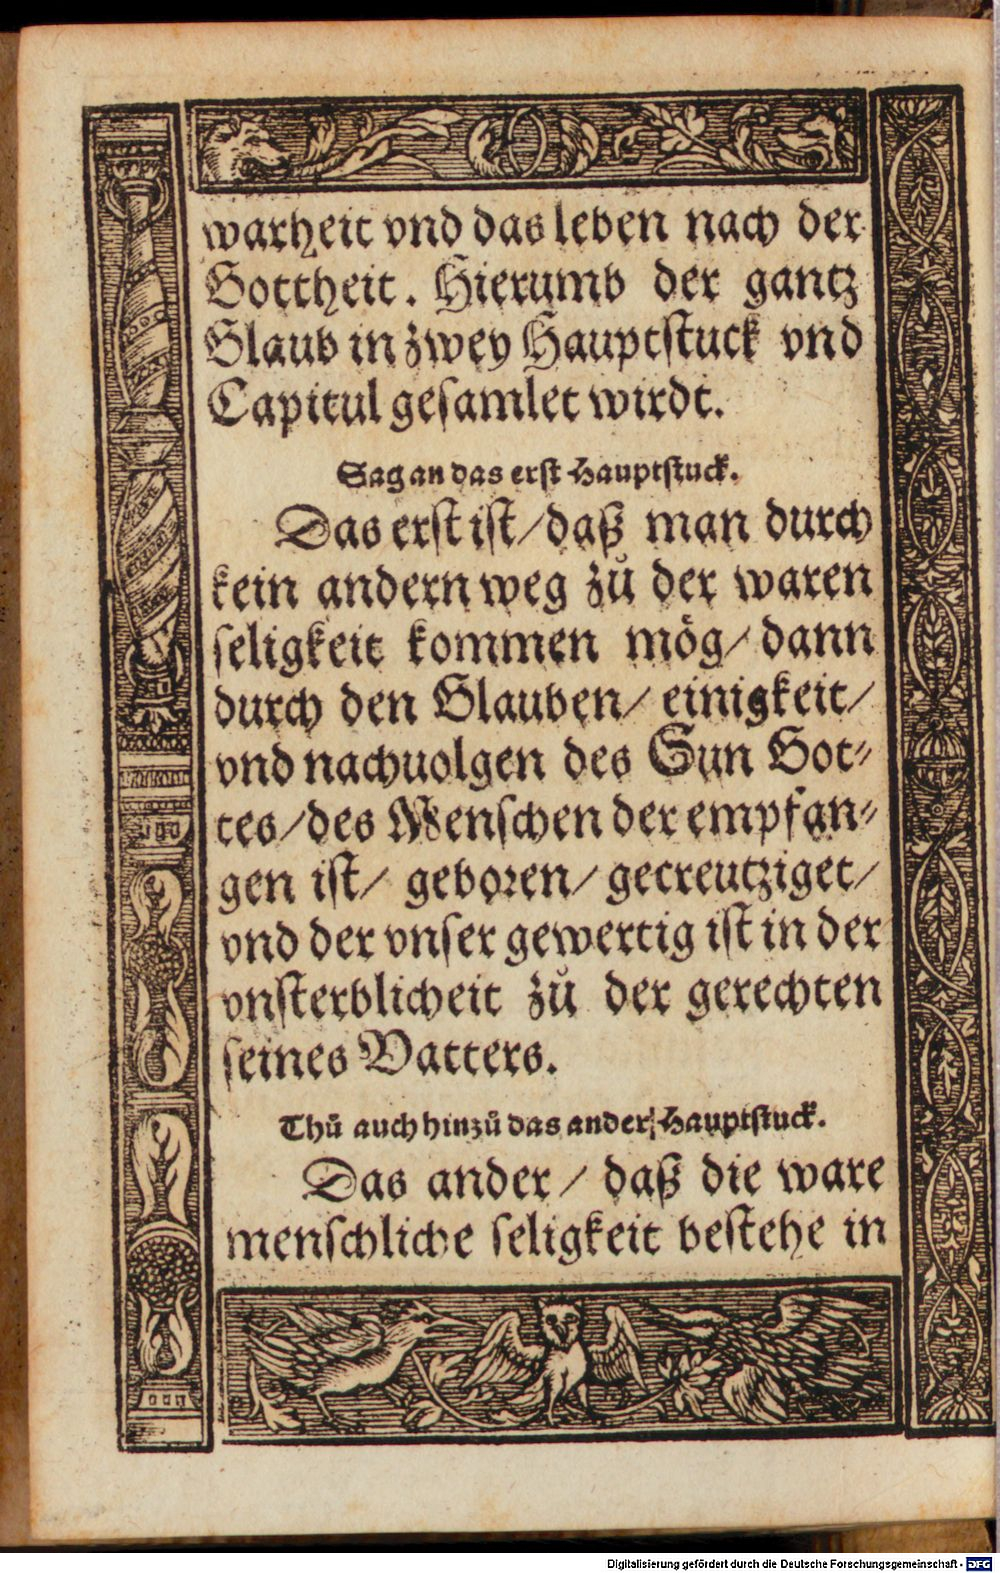 warheit vnd das leben nach der
Gottheit. Hierumb der gantz
Glaub in zwey Hauptstuck vnd
Capitul gesamlet wirdt.
Sag an das erst Hauptstuck.
Das erst ist/ daß man durch
kein andern weg zů der waren
seligkeit kommen mög/ dann
durch den Glauben/ einigkeit/
vnd nachuolgen des Sun Got-
tes/ des Menschen der empfan-
gen ist/ geboren/ gecreutziget/
vnd der vnser gewertig ist in der
vnsterblicheit zů der gerechten
seines Vatters.
Thů auch hinzů das ander Hauptstuck.
Das ander/ daß die ware
menschliche seligkeit bestehe in
Digitalisierung gefördert durch die Deutsche Forschungsgemeinschaft - DFG